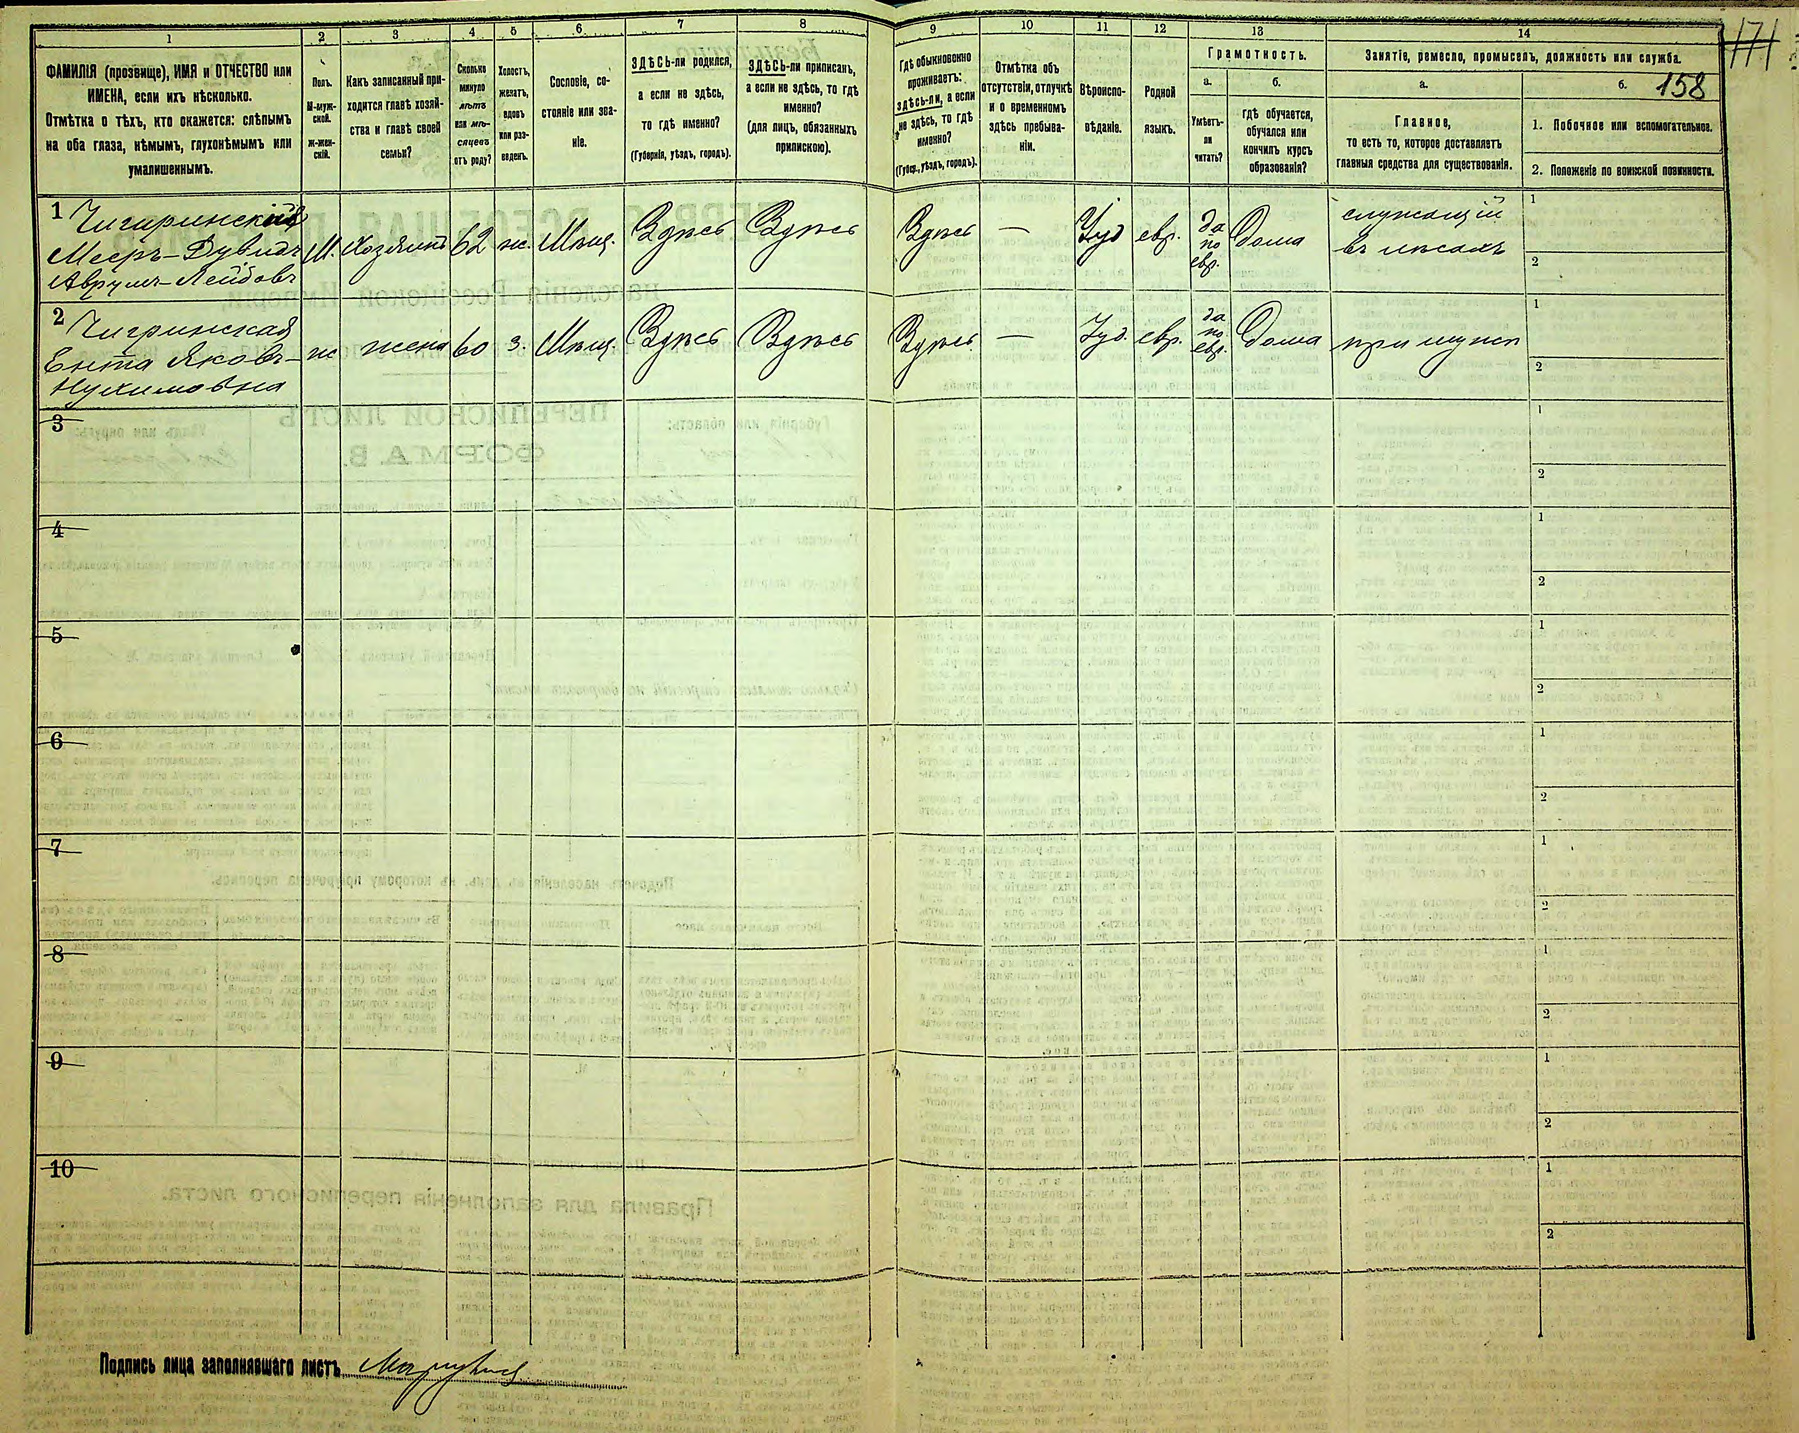 171
158
1
2
3
4
5
6
7
8
9
10
11
12
13
14
ФАМИЛІЯ (прозвище), ИМЯ и ОТЧЕСТВО или
ИМЕНА, если ихъ нѣсколько.
Отмѣтка о тѣхъ, кто окажется: слѣпымъ
на оба глаза, нѣмымъ, глухонѣмымъ или
умалишеннымъ.
Полъ.
М-муж-
ской.
ж-жен-
скій.
Какъ записанный при-
ходится главѣ хозяй-
ства и главѣ своей
семьи?
Сколько
минуло
лѣтъ
или мѣ-
сяцевъ
отъ роду?
Холостъ,
женатъ,
вдовъ
или раз-
веденъ.
Сословіе, со-
стояніе или зва-
ніе.
ЗДѢСЬ-ли родился,
а если не здѣсь,
то гдѣ именно?
(Губернія, уѣздъ, городъ).
ЗДѢСЬ-ли приписанъ,
а если не здѣсь, то гдѣ
именно?
(для лицъ, обязанныхъ
припискою).
Гдѣ обыкновенно
проживаетъ:
здѣсь-ли, а если
не здѣсь, то гдѣ
именно?
(Губер., уѣздъ, городъ).
Отмѣтка объ
отсутствіи, отлучкѣ
и о временномъ
здѣсь пребыва-
ніи.
Вѣроиспо-
вѣданіе.
Родной
языкъ.
Грамотность.
а.
Умѣетъ-
ли
читать?
б.
гдѣ обучается,
обучался или
кончилъ курсъ
образованія?
Занятіе, ремесло, промыселъ, должность или служба.
а.
Главное,
то есть то, которое доставляетъ
главныя средства для существованія.
б.
1. Побочное или вспомогательное.
2. Положеніе по воинской повинности.
1
Чигаринскій
Мееръ-Дувидъ
Аврумъ-Лейбовъ
М.
Хозяинъ
62
ж.
Мѣщ.
Здѣсь
Здѣсь
Здѣсь
—
Іуд
евр.
да
по
евр.
Дома
служащій
въ лѣсахъ
1
2
2
Чигринская
Ента Яковъ-
Нухимовна
ж
жена
60
з.
Мѣщ.
Здѣсь
Здѣсь
Здѣсь
—
Іуд.
евр.
да
по
евр.
Дома
при мужѣ
1
2
3
1
2
4
1
2
5
1
2
6
1
2
7
1
2
8
1
2
9
1
2
10
1
2
Подпись лица заполнявшаго листъ